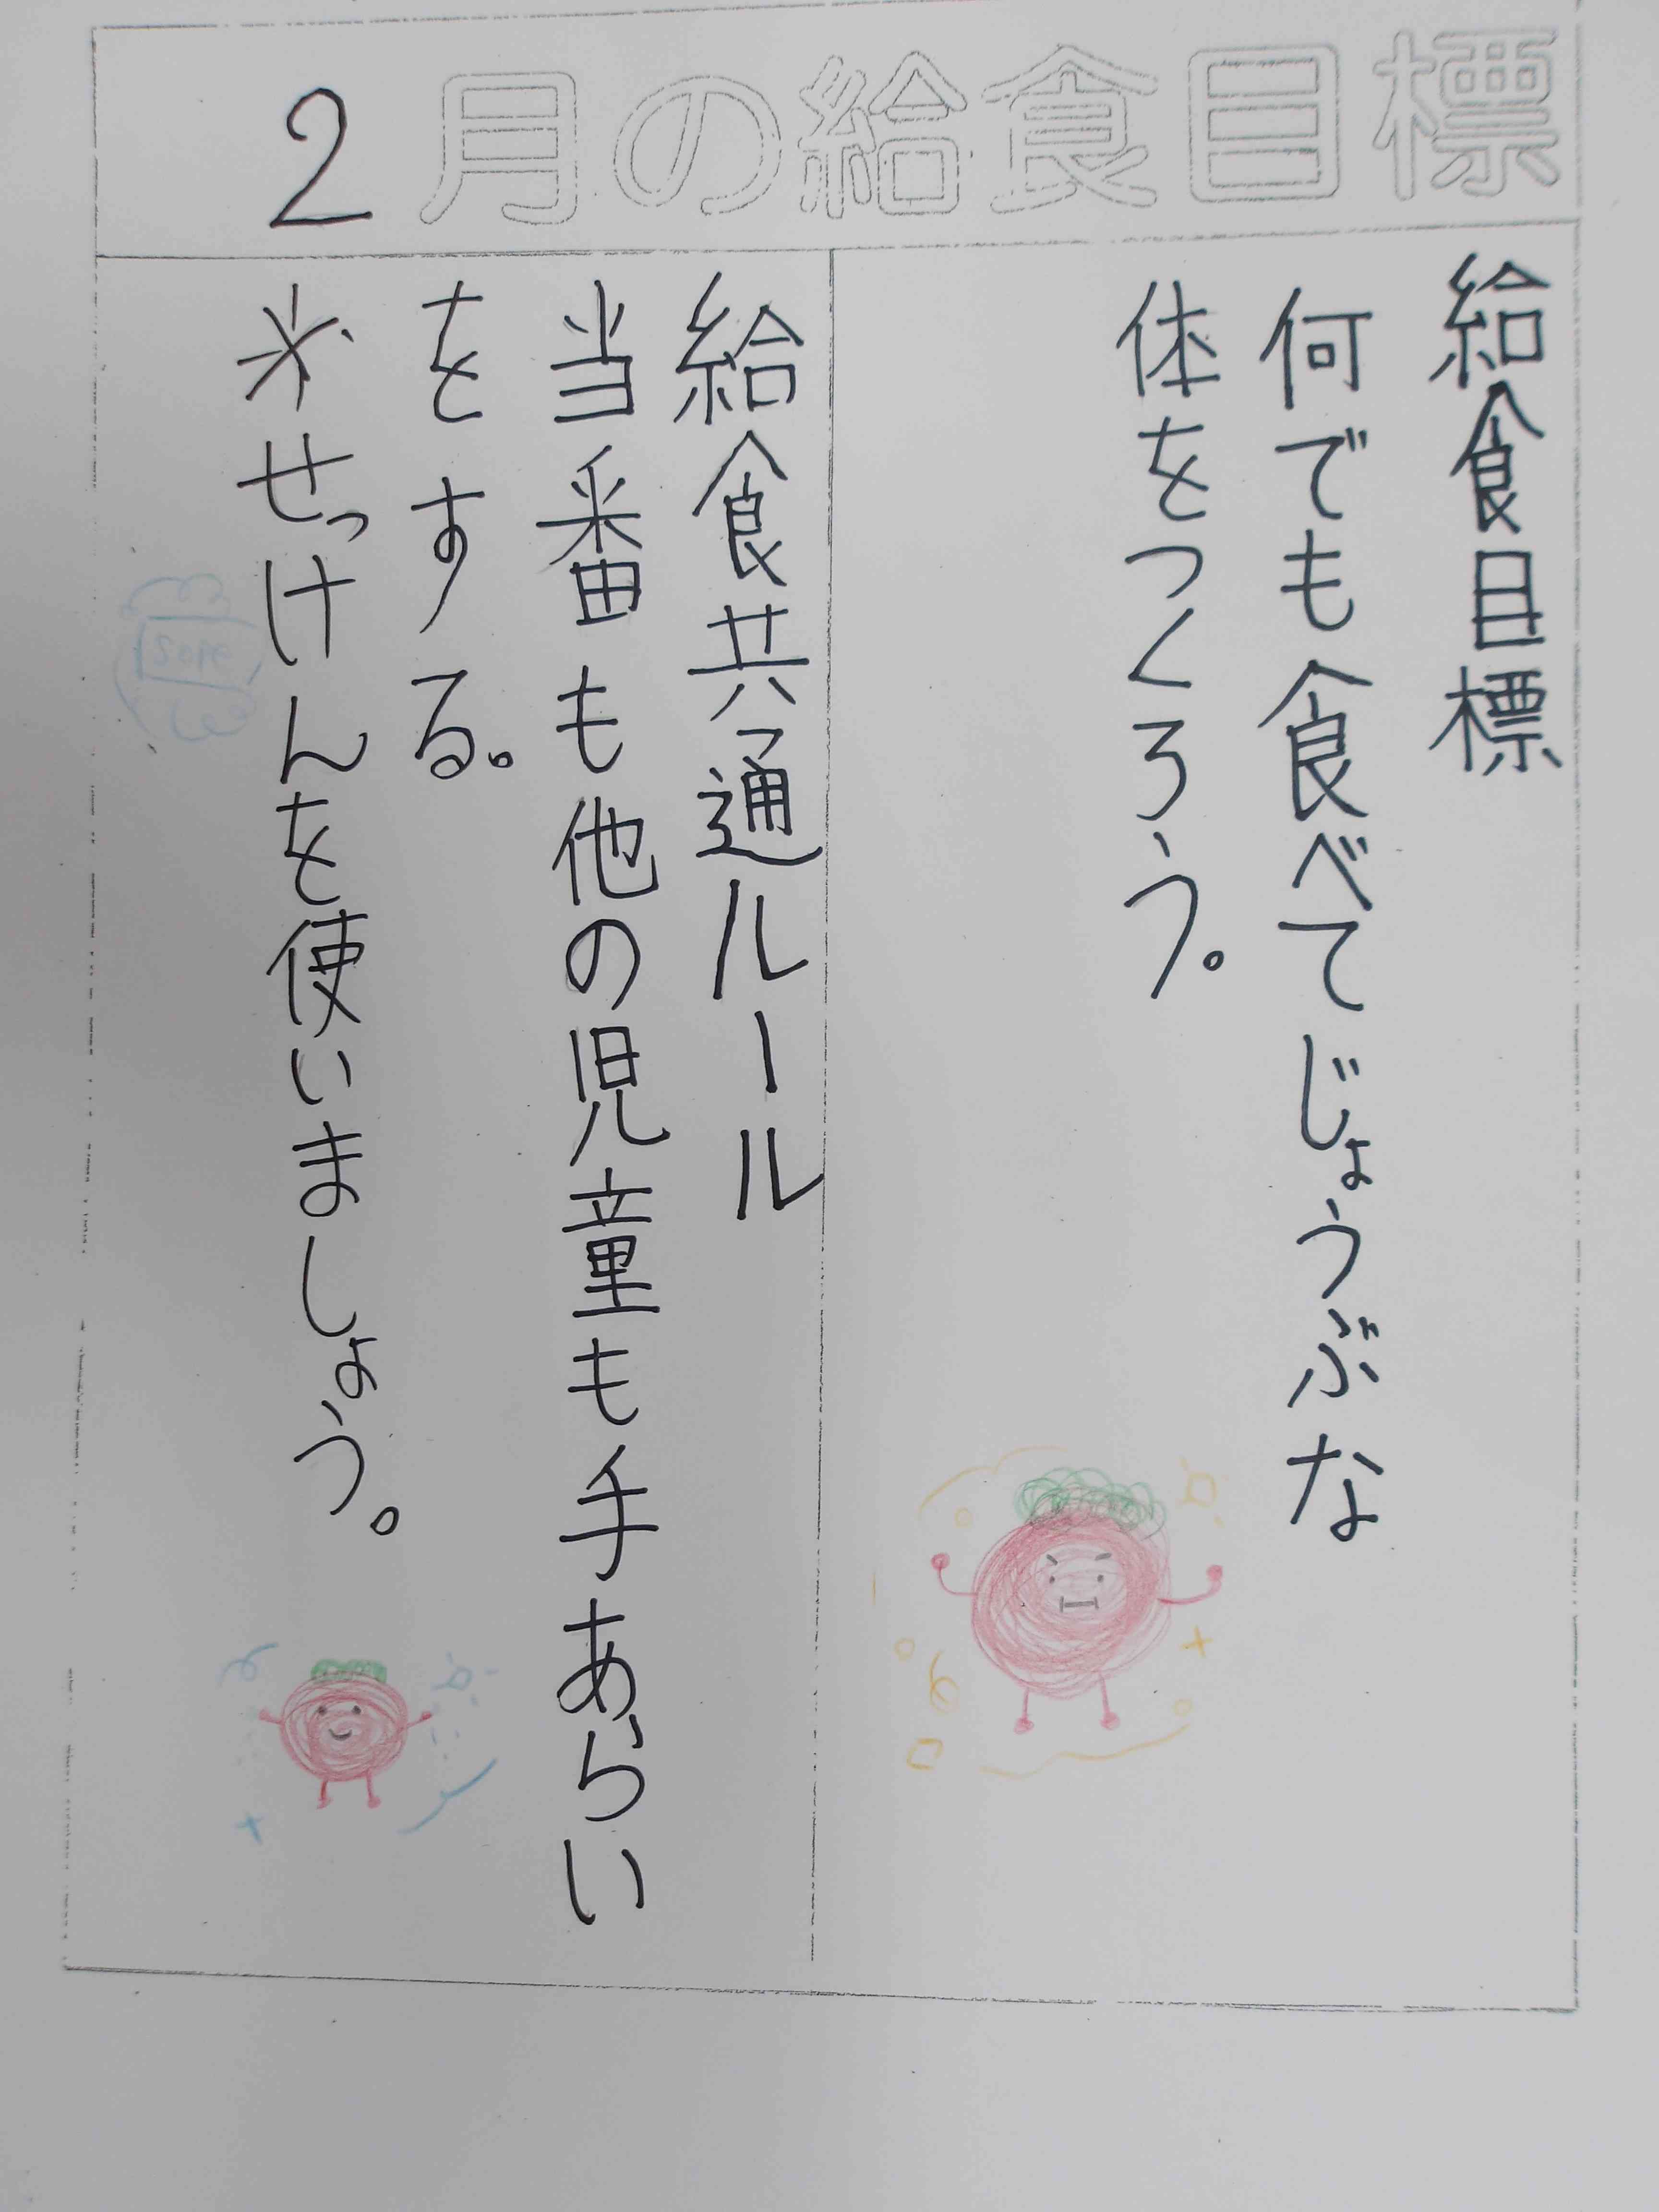 2月の給食目標
給食目標
何でも食べてじょうぶな
体をつくろう。
給食共通ルール
当番も他の児童も手あらい
をする。
※せっけんを使いましょう。
Sope